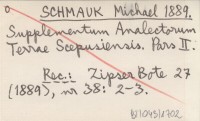 SCHMAUK Michael 1889.
Supplementum Analectorum
Terrae Scepusiensis. Pars II.
Rec.: Zipser Bote 27
(1889), nr 38: 2-3.